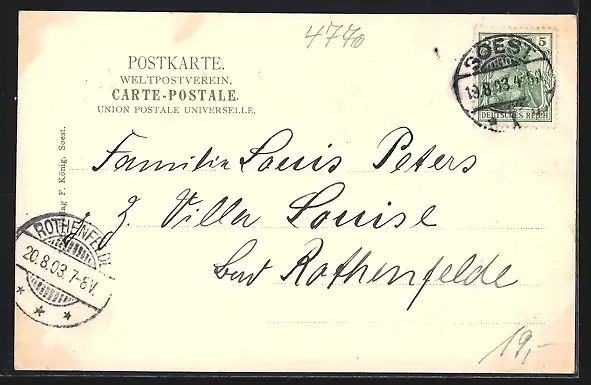 4770
POSTKARTE.
WELTPOSTVEREIN.
CARTE-POSTALE.
UNION POSTALE UNIVERSELLE.
SOEST
19.8.03. 4-5N.
* 1
5
DEUTSCHES REICH
Familie Louis Peters
z. Villa Louise
Bad Rothenfelde
F. König, Soest.
ROTHENFELDE
20.8.03. 7-8V.
* * *
19,-